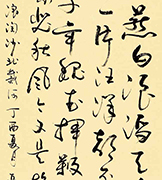 燕白浪滔天
一片汪洋都
千年魏武挥鞭
秋风今又是
淘沙北戴河 丁酉夏月